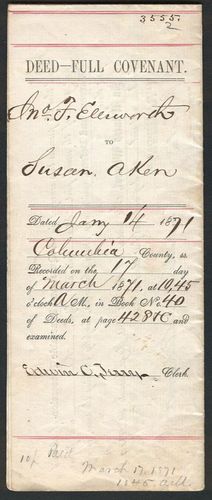 3555.
2
DEED—FULL COVENANT.
Jno. F. Ellsworth
TO
Susan Aken
Dated Jany 14 1871
Columbia County, ss
Recorded on the 17 day
of March 1871, at 10,45
o'clock A M., in Book No. 40
of Deeds, at page 428 &C and
examined.
Edwin C. Terry Clerk.
Paid
March 17. 1871
1145